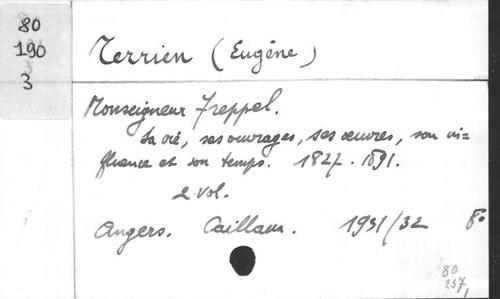 80
190
3
Terrien (Eugène)
Monseigneur Freppel.
Sa vie, ses ouvrages, ses œuvres, son in=
fluence et son temps. 1827-1891.
2 vol.
Angers. Caillaux. 1931/32 8°
80
237,